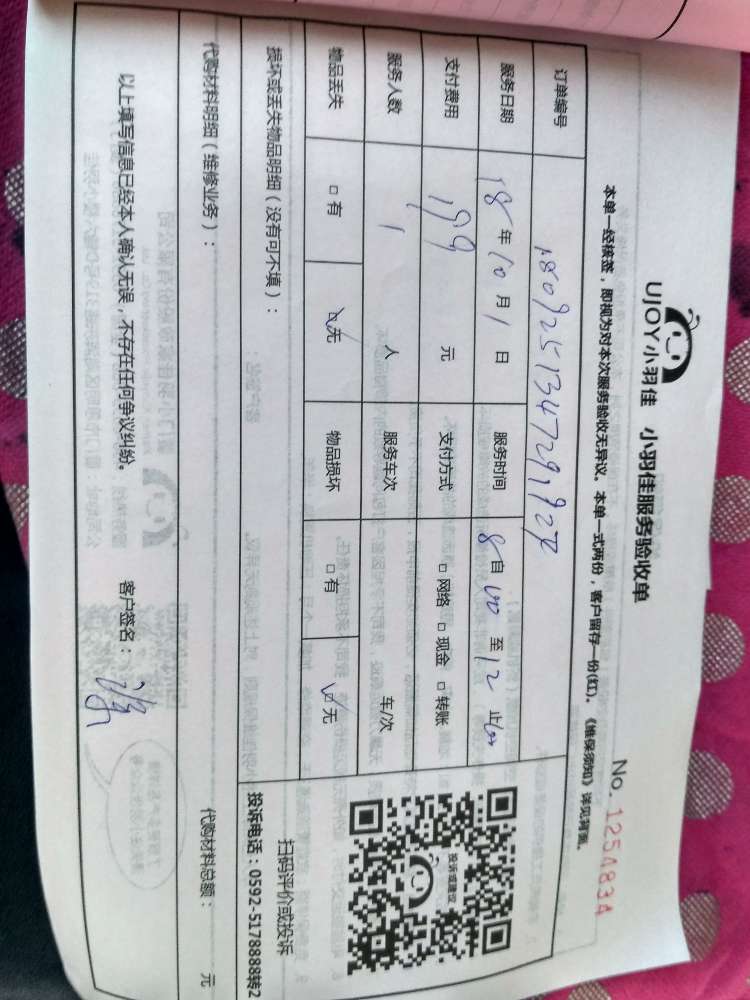 UJOY小羽佳 小羽佳服务验收单
No. 1254834
本单一经核签，即视为对本次服务验收无异议。本单一式两份，客户留存一份(红)。《维保须知》详见背面。
订单编号
服务日期 18 年 10 月 1 日 服务时间 自 8:00 至 12:00 止
支付费用 199 元 支付方式 □ 网络 □ 现金 □ 转账
服务人数 1 人 服务车次 车/次
物品丢失 □ 有 ☑ 无 物品损坏 □ 有 ☑ 无
投诉或建议
扫码评价或投诉
投诉电话：0592-5178888转2
损坏或丢失物品明细（没有可不填）：
代购材料明细（维修业务）： 代购材料总额： 元
以上填写信息已经本人确认无误，不存在任何争议纠纷。 客户签名：